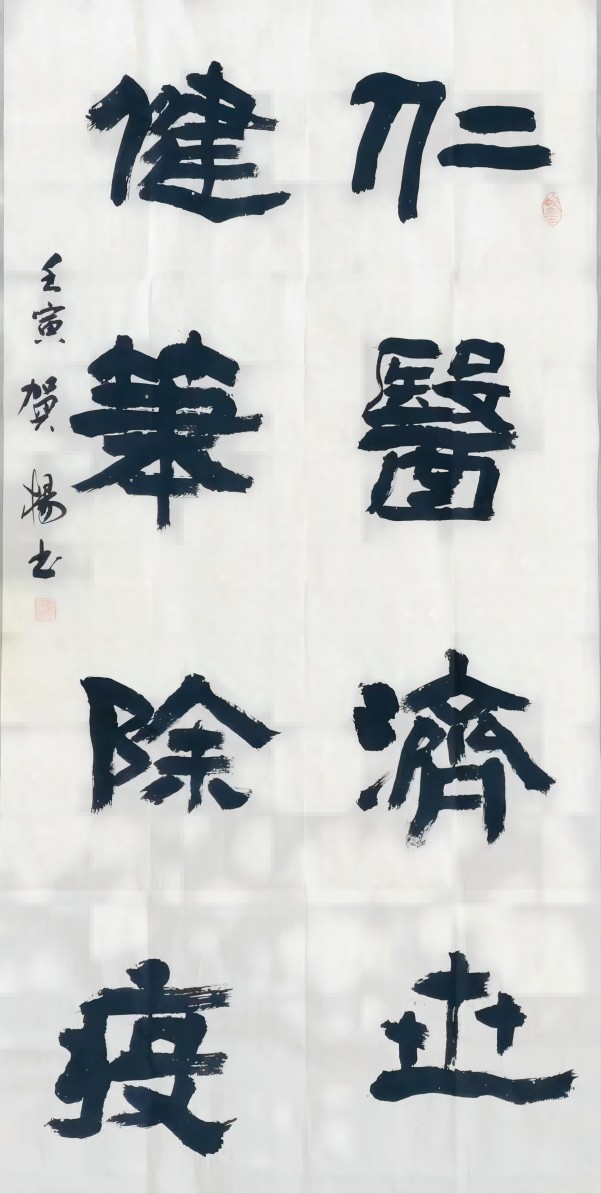 仁醫濟世
健筆除疫
壬寅 賀楊书